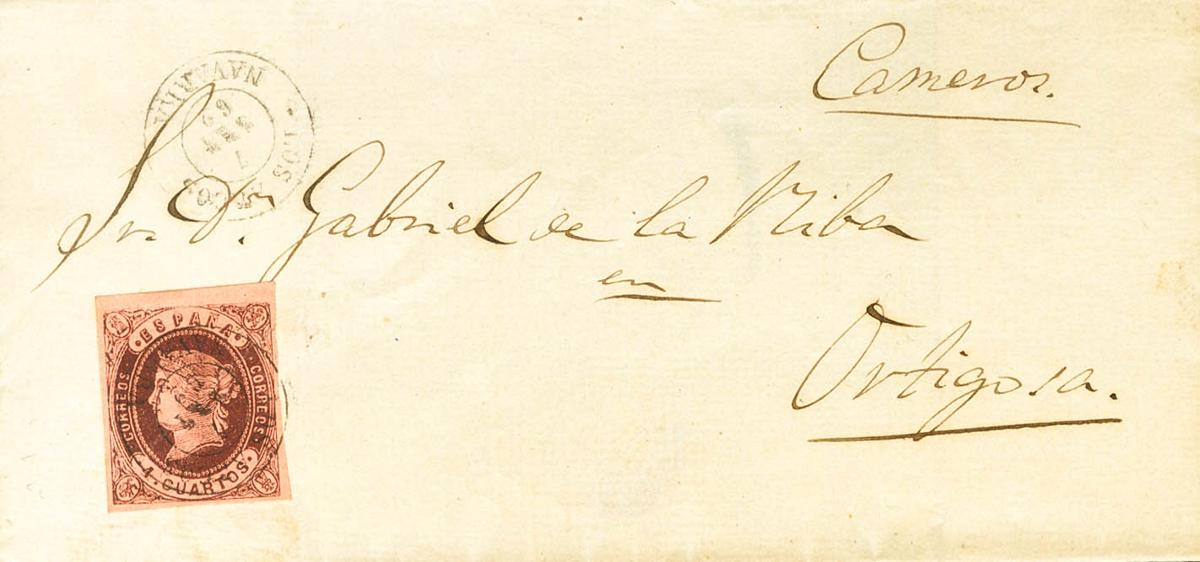 Cameros.
NAVARRA
LOS ARCOS
Sr. Dn. Gabriel de la Riba
en
Ortigosa.
ESPAÑA
CORREOS
CORREOS
4 CUARTOS